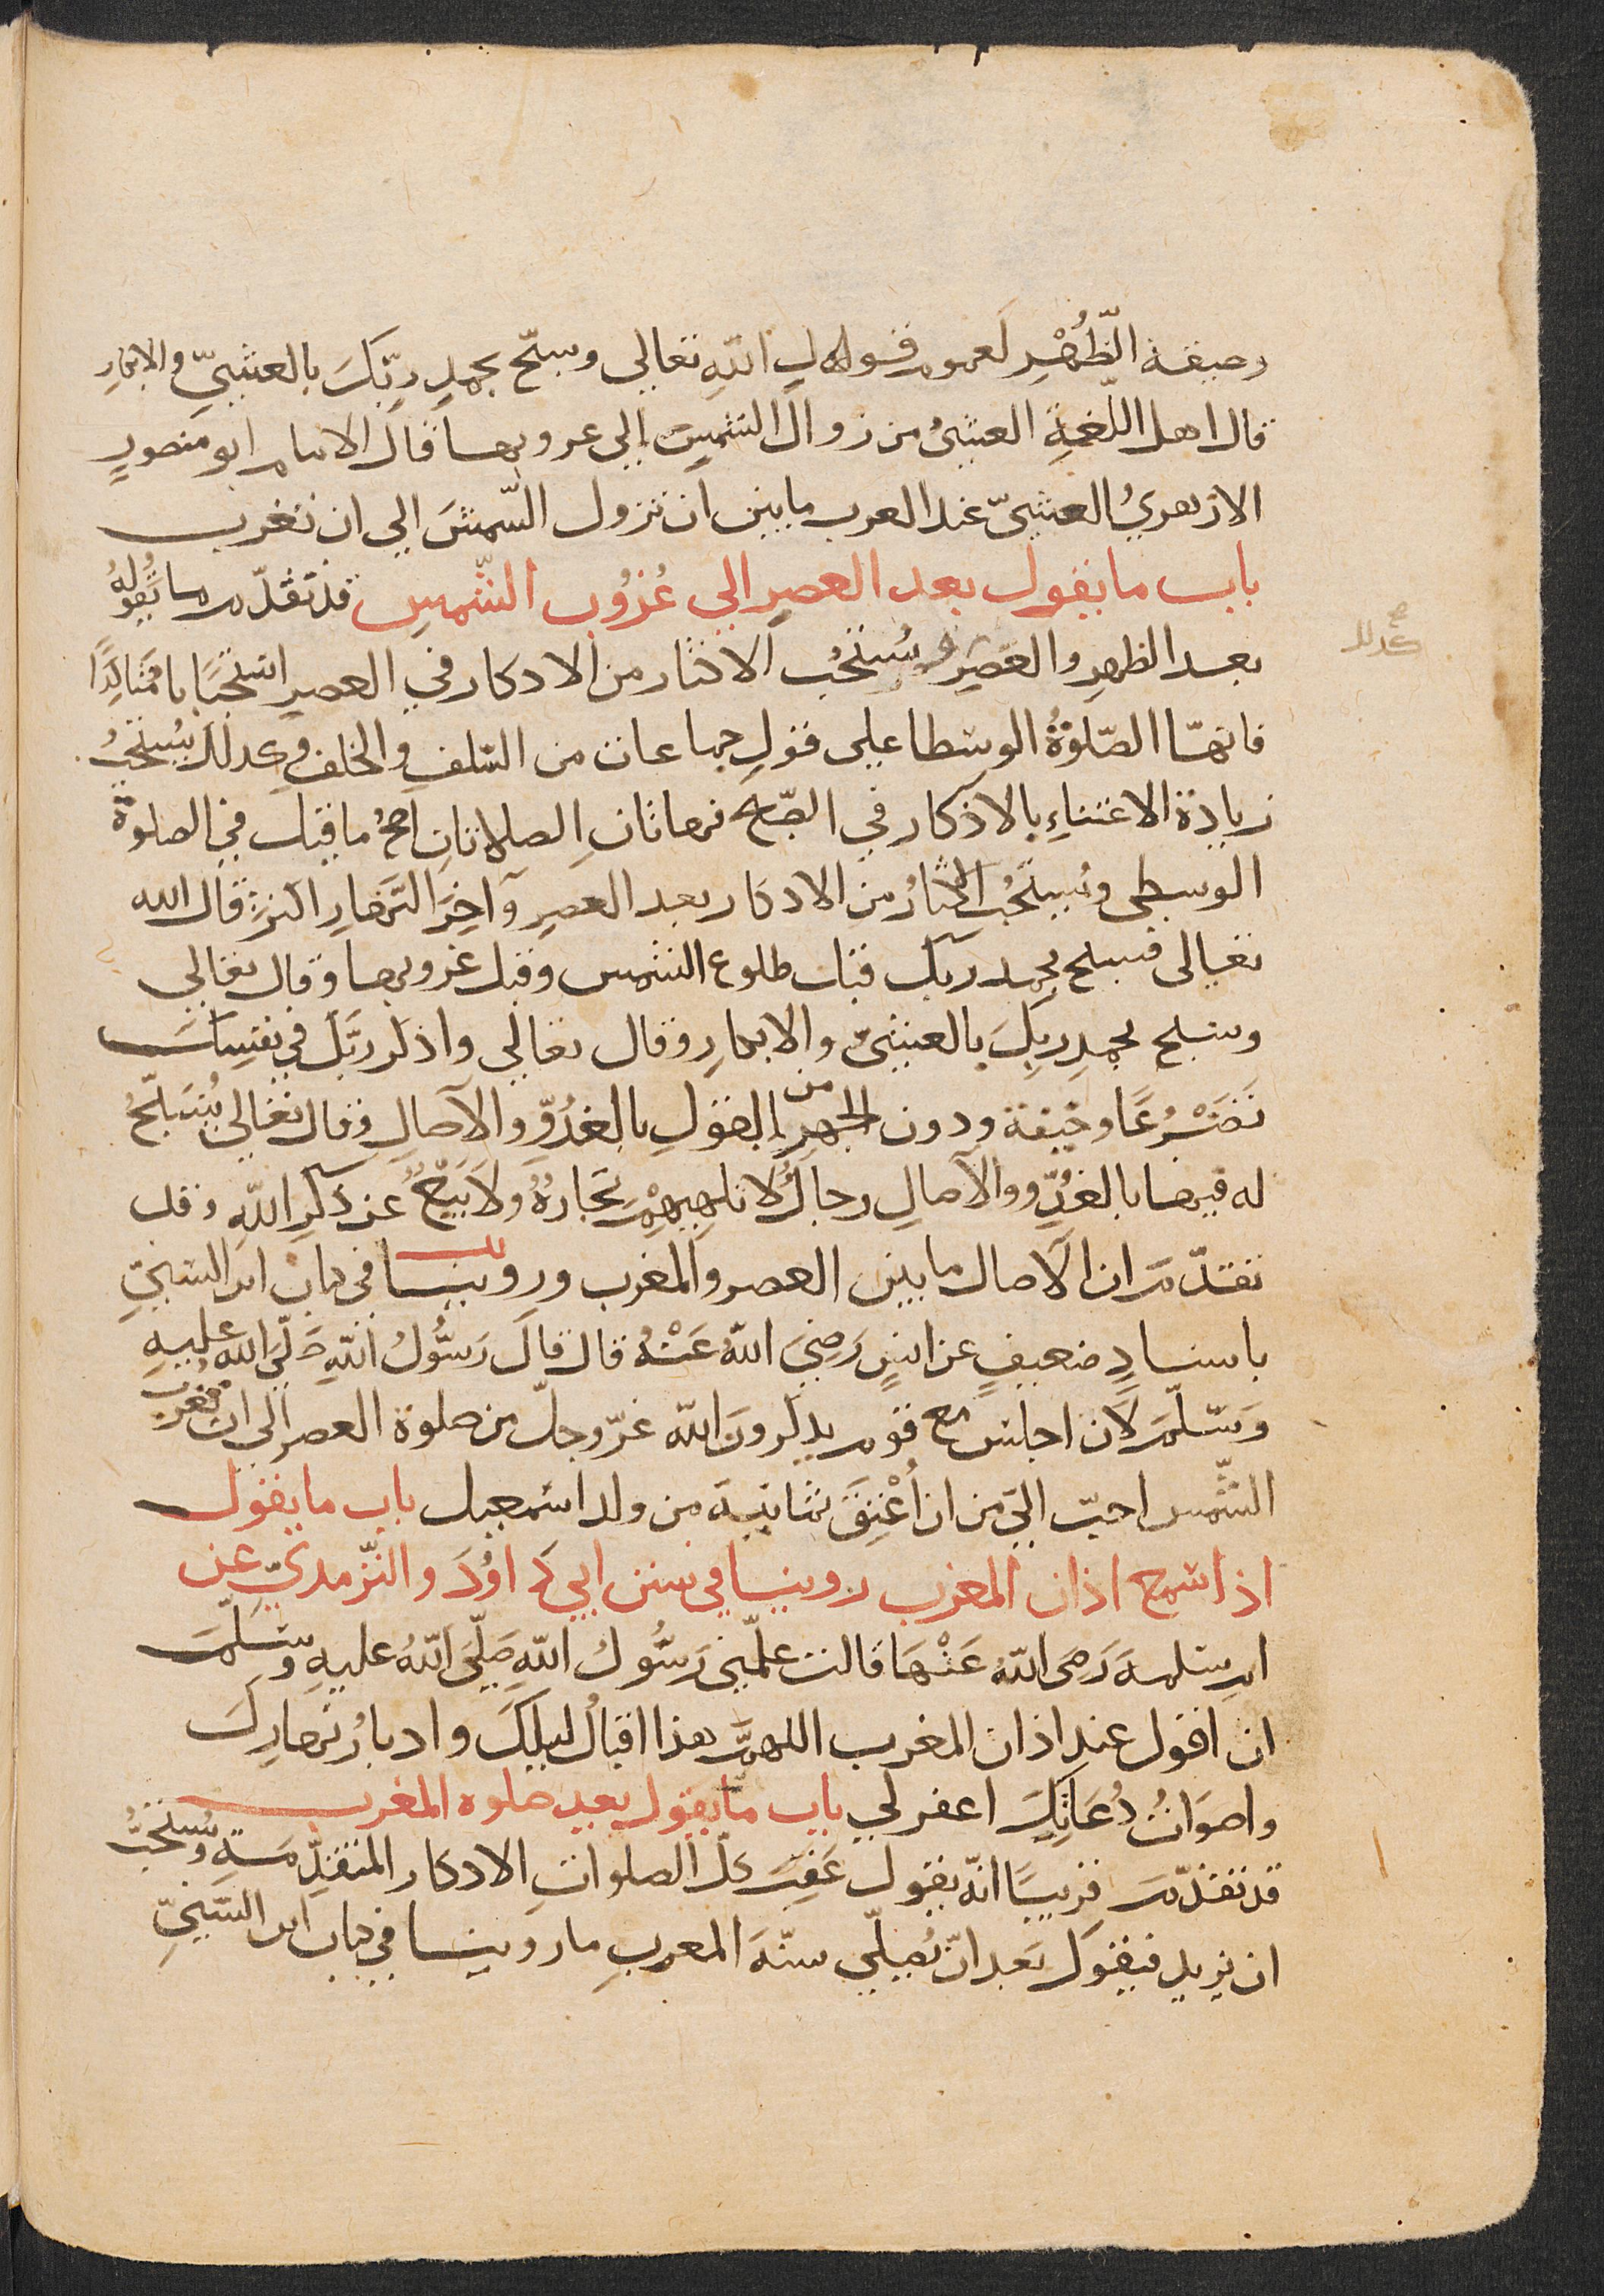 وصيفة الظُّهْرِ لعموم قوله لِ اللّهِ تعالى وسبّح بحمدِ ربّكَ بالعشيّ والابكارِ
قال اهل اللّغةِ العشيُّ من زوال الشمسِ إلى غروبها قال الامام ابو منصورٍ
الازهريُّ العشيّ عند العرب ما بين ان تزول الشمسَ الى ان تغرب
باب ما يقول بعد العصرِ الى غُرُوب الشّمسِ قد تقدّم ما يقُولهُ
بعد الظهرِ والعصرِ ويُستحبُ الاكثار من الاذكار في العصرِ استحبابا متأكِّدًا
فانهّا الصّلوةُ الوسطا على قولِ جماعات من السّلفِ والخلفِ وكذلك يُستحبُ
زيادة الاعتناءِ بالاذكار في الصّبح فهاتانِ الصلاتانِ اصحُّ ما قيل في الصلوة
الوسطى ويُستحبُ الاكثارُ من الاذكار بعد العصرِ وآخِرَ النّهارِ اكثرَ قال الله
تعالى فسبح بحمد ربّك قبل طلوع الشمس وقبل غروبها وقال تعالى
وسبح بحمدِ ربِكَ بالعشىّ والابكارِ وقال تعالى واذكر ربّك في نفسِك
تَضَرُّعًا وخيفة ودون الجهرِ من القولِ بالغُدُوِّ والآصالِ وقال تعالى يُسَبّحُ
له فيها بالغُدُوِّ والآصالِ رجالٌ لا تلهيهِمْ تجارةٌ ولا بَيْعٌ عن ذكرِ اللّهِ وقد
تقدّم ان الآصال ما بين العصر والمغرب وروينا في كتاب ابن السُّنيِّ
باسنادٍ ضعيفٍ عن انسٍ رَضِيَ اللّهُ عَنْهُ قال قالَ رَسُولُ اللّهِ صَلَّى اللّه عليهِ
وَسَلّمَ لَان اجلسَ مع قومٍ يذكرونَ اللّه عزّ وجلّ من صلوة العصر الى ان تغرب
الشّمس احبّ الىّ من ان أُعْتِقَ ثمانية من ولد اسمعيل باب ما يقول
اذا سمع اذان المغرب روينا في سنن ابي دَاوُدَ والتّرمذيّ عن
ام سلمه رَضى اللّهُ عَنْهَا قالت علّمني رَسُولُ اللّهِ صَلَّىَ اللّهُ عليهِ وسَلّمَ
ان اقول عند اذان المغرب اللهمّ هذا اقبالُ ليلِكَ وادبارُ نهارِكَ
واصوَاتُ دُعَاتِكَ اغفر لي باب ما يقول بعد صلوه المغرب
قد تقدّم قريبًا انّه يقول عَقِبَ كلّ الصلواتِ الاذكار المتقدّمَة ويُستحبُّ
ان يزيد فيقول بَعد انْ يُصلّي سنّةَ المغربِ ما روينا في كتاب ابن السُّنيِّ